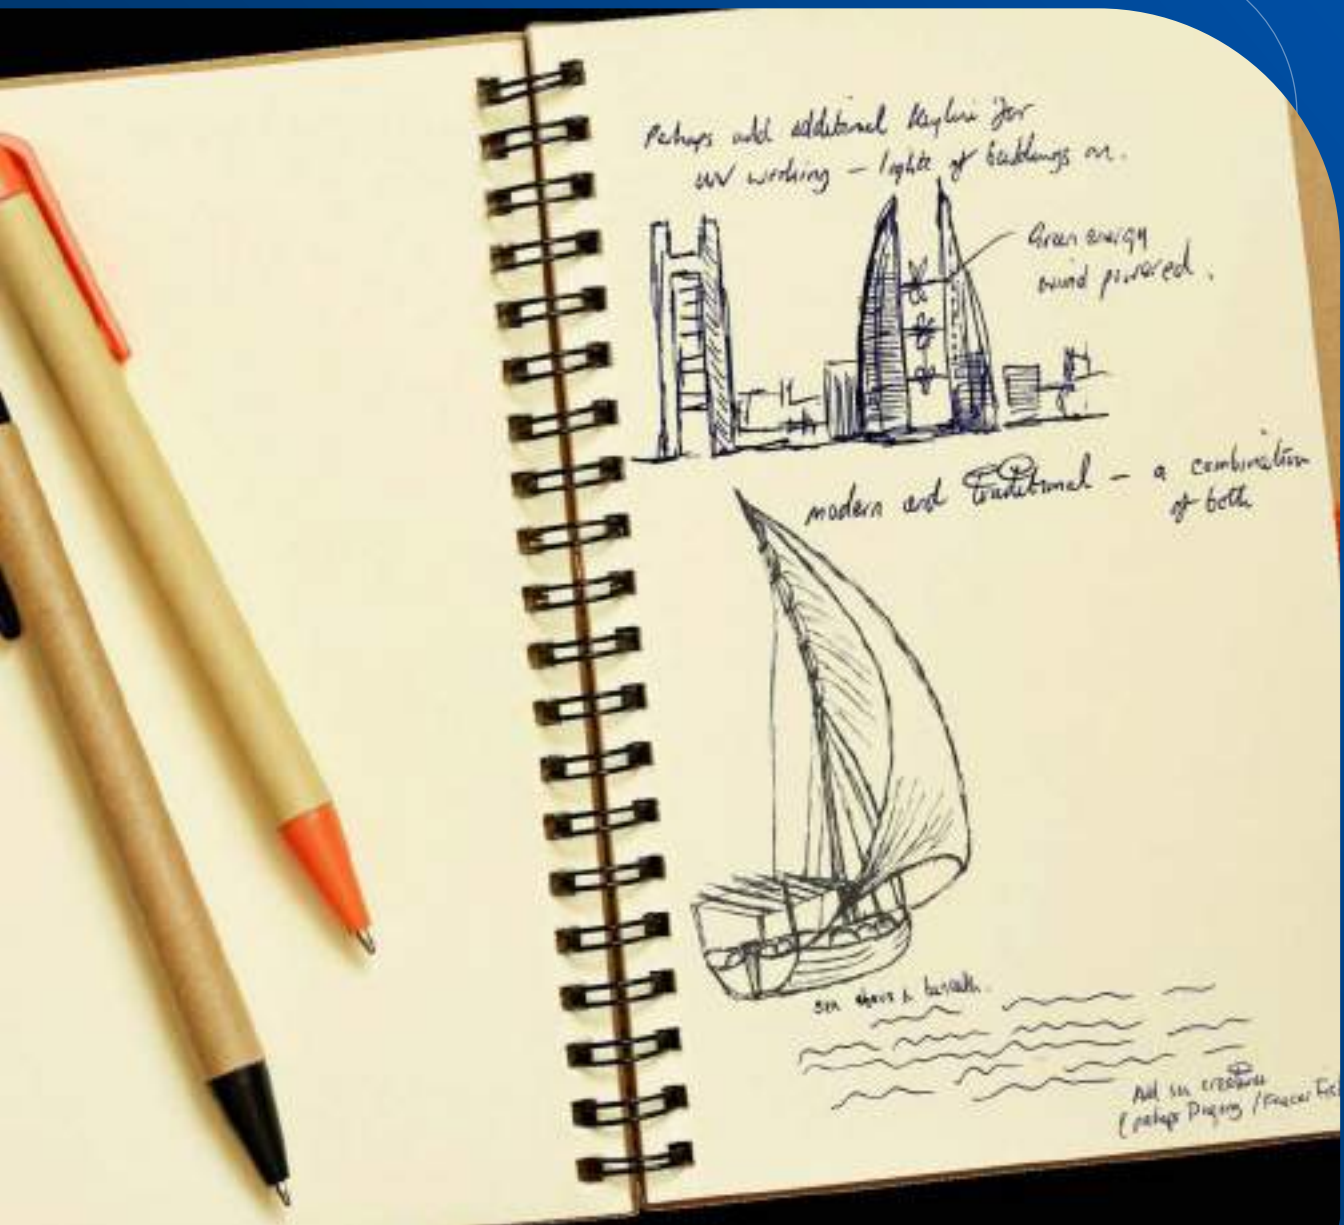 Perhaps add additional keyline for
UV working – lights of buildings on.
Green energy
wind powered.
modern and traditional – a combination
of both
sea above & beneath.
Add sea creatures
(perhaps Dugong /